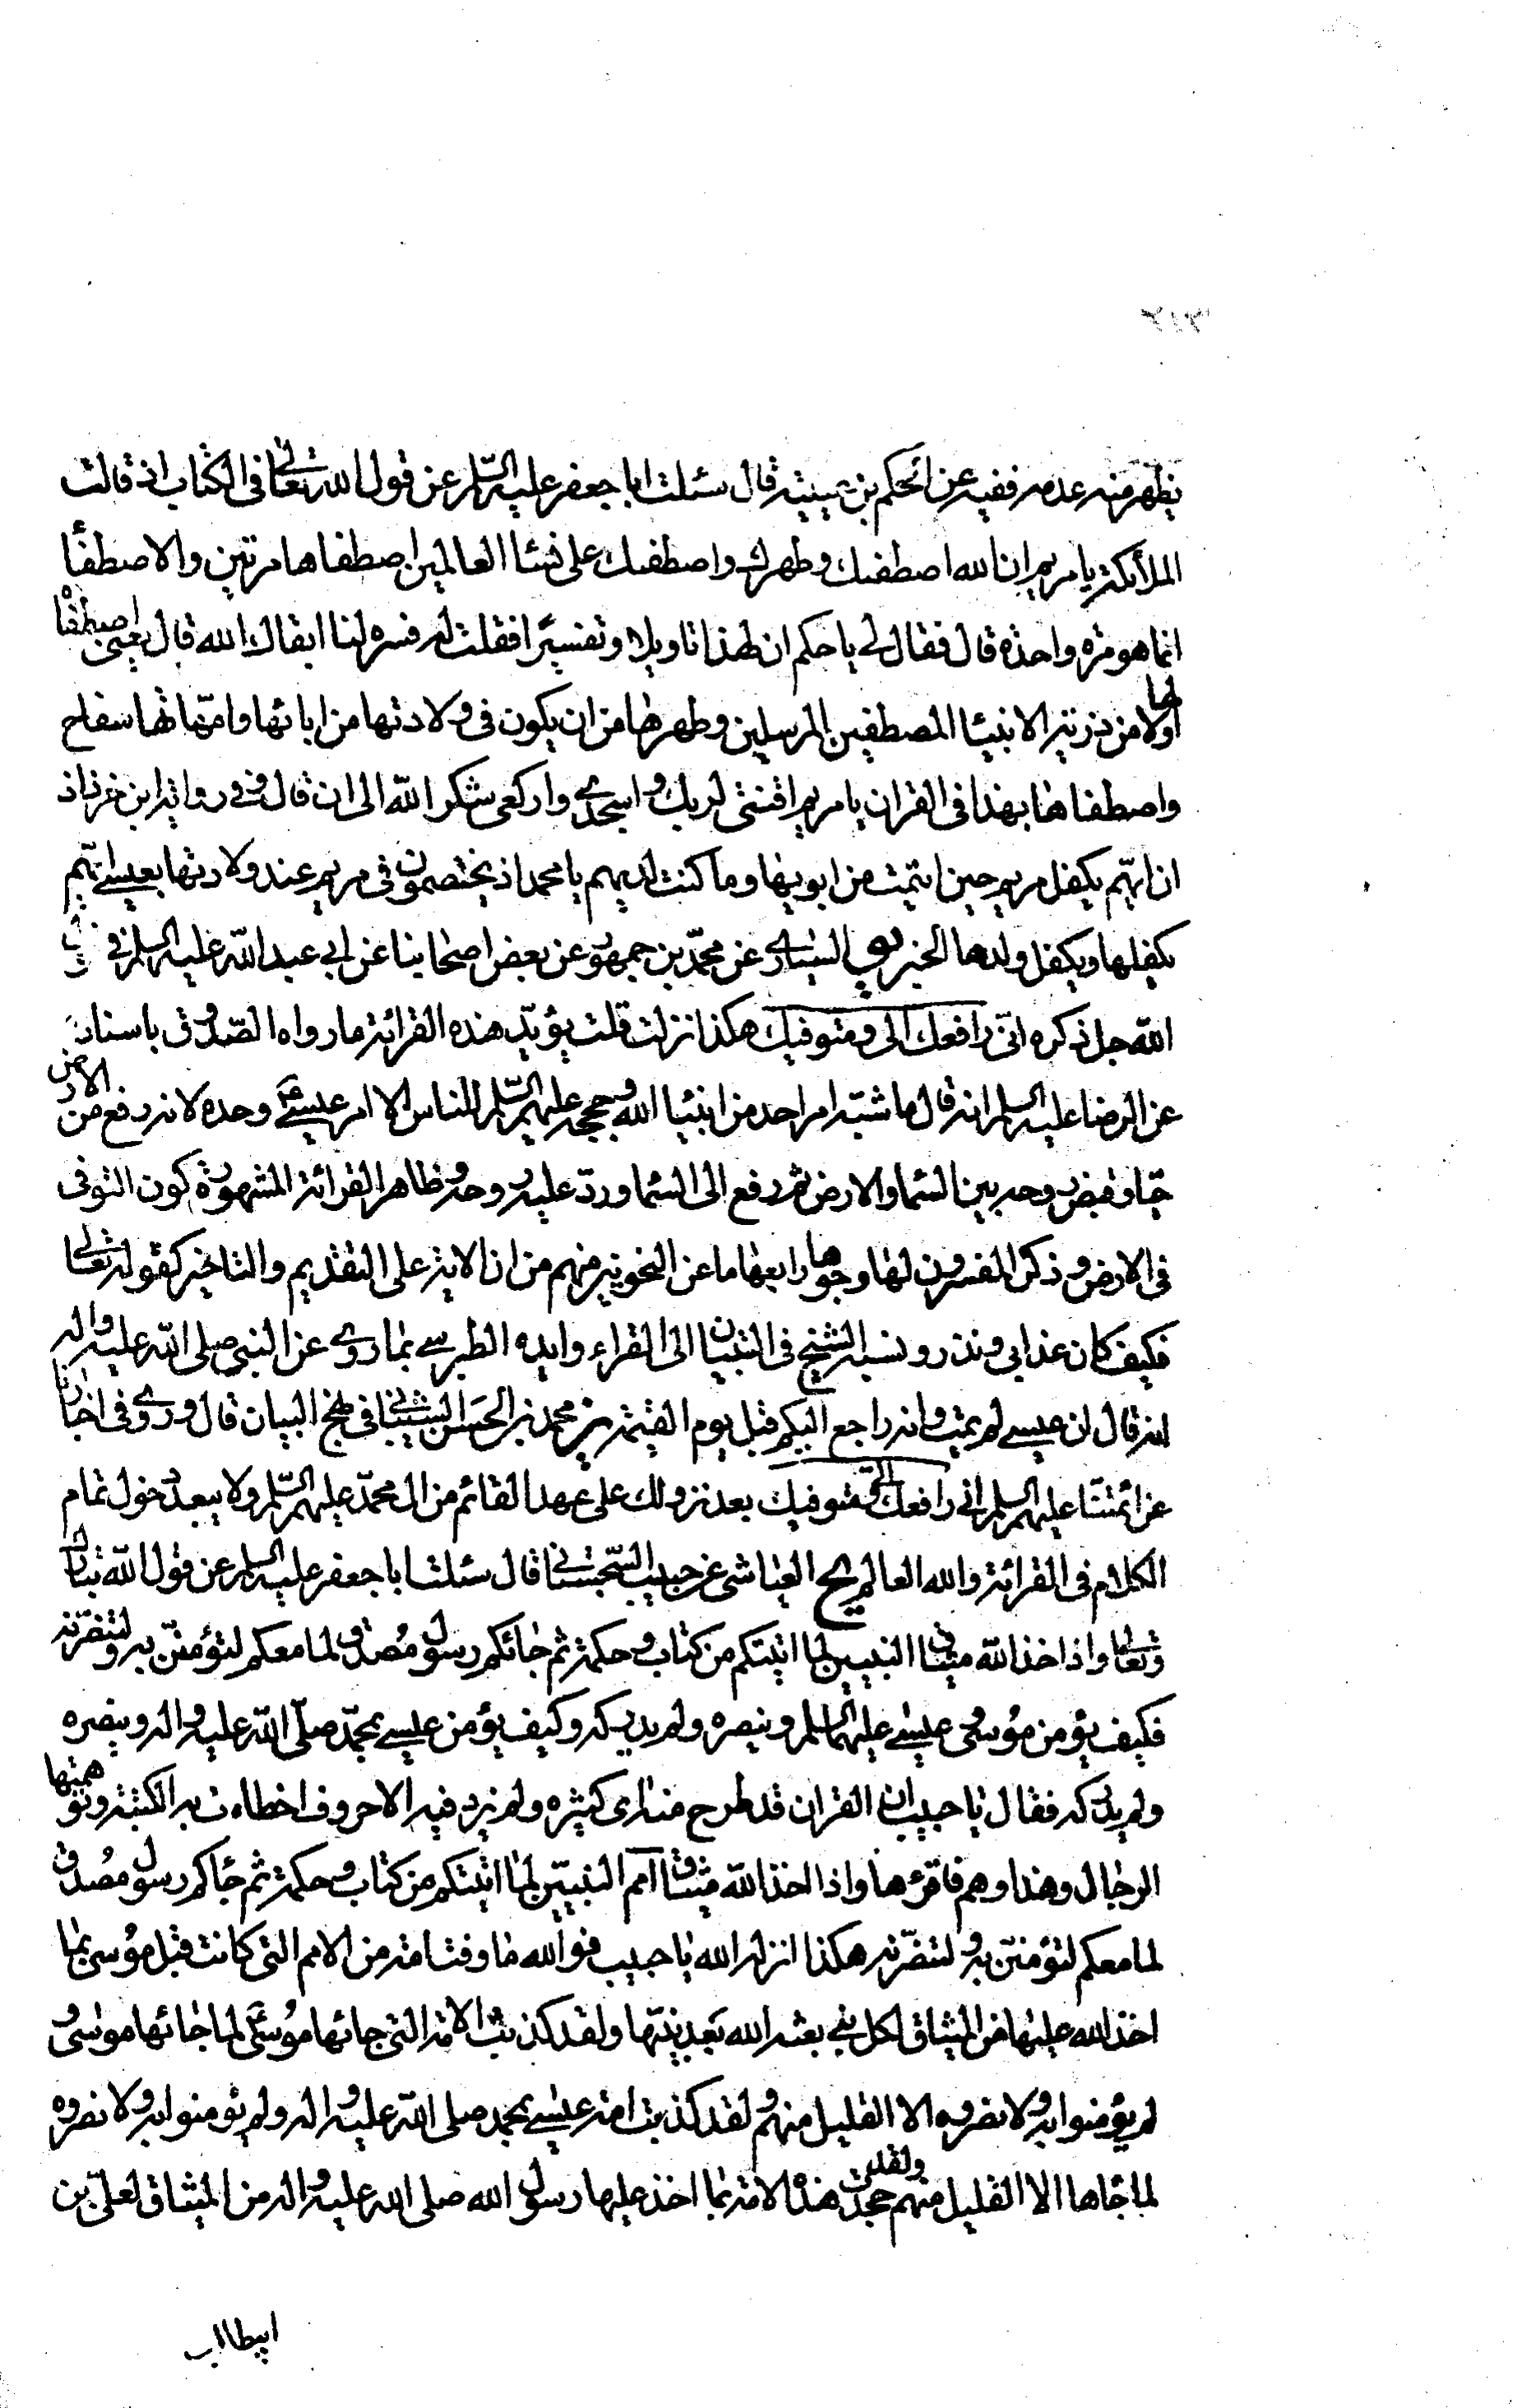 يظهر منه عدمه ففيه عن الحكم بن عيينة قال سئلت ابا جعفر عليه السلم عن قول الله تعالى في الكتاب اذ قالت
الملائكة يا مريم ان الله اصطفيك وطهرك واصطفيك على نسآء العالمين اصطفاها مرتين والاصطفآء
انما هو مرة واحدة قال فقال لي يا حكم ان لهذا تاويلا وتفسيرا فقلت له فسره لنا ابقاك الله قال يعني اصطفاها
اولا من ذرية الانبيآء المصطفين المرسلين وطهرها من ان يكون في ولادتها من ابائها وامهاتها سفاح
واصطفاها بهذا في القران يا مريم اقنتي لربك واسجدي واركعي شكرا لله الى ان قال وفي رواية ابن خرزاذ
ان ايهم يكفل مريم حين ايتمت من ابويها وما كنت لديهم يا محمد اذ يختصمون في مريم عند ولادتها بعيسى ايهم
يكفلها ويكفل ولدها الخبر السياري عن محمد بن جمهور عن بعض اصحابنا عن ابي عبد الله عليه السلم في
الله جل ذكره اني رافعك الي ومتوفيك هكذا نزلت قلت يؤيد هذه القرائة ما رواه الصدوق باسناده
عن الرضا عليه السلم انه قال ما شبه امر احد من انبيآء الله وحججه عليهم السلم للناس الا امر عيسى وحده لانه رفع من الارض
حيا وقبض روحه بين السمآء والارض ثم رفع الى السمآء ورد عليه روحه وظاهر القرائة المشهورة كون التوفي
في الارض وذكر المفسرون لها وجوها رابعها ما عن النحويين منهم من ان الاية على التقديم والتاخير كقوله تعالى
فكيف كان عذابي ونذر ونسبه الشيخ في التبيان الى القراء وايده الطبرسي بما روي عن النبي صلى الله عليه واله
انه قال ان عيسى لم يمت وانه راجع اليكم قبل يوم القيمة محمد بن الحسن الشيباني في نهج البيان قال وروي في اخبارنا
عن ائمتنا عليهم السلم اني رافعك الي ومتوفيك بعد نزولك على عهد القائم من ال محمد عليهم السلم ولا يبعد دخول تمام
الكلام في القرائة والله العالم العياشي عن حبيب السجستاني قال سئلت ابا جعفر عليه السلم عن قول الله تبارك
وتعالى واذ اخذ الله ميثاق النبيين لما اتيتكم من كتاب وحكمة ثم جائكم رسول مصدق لما معكم لتؤمنن به ولتنصرنه
فكيف يؤمن موسى عيسى عليهما السلم وينصره ولم يدركه وكيف يؤمن عيسى بمحمد صلى الله عليه واله وينصره
ولم يدركه فقال يا حبيب ان القران قد طرح منه اى كثيرة ولم يزد فيه الا حروف اخطاءت به الكتبة وتوهمتها
الرجال وهذا وهم فاقرءها واذ اخذ الله ميثاق امم النبيين لما اتيتكم من كتاب وحكمة ثم جاكم رسول مصدق
لما معكم لتؤمنن به ولتنصرنه هكذا انزلها الله يا حبيب فو الله ما وفت امة من الامم التي كانت قبل موسى بما
اخذ الله عليها من الميثاق لكل نبي بعثه الله بعد نبيها ولقد كذبت الامة التي جائها موسى لما جائها موسى و
لم يؤمنوا به ولا نصروه الا القليل منهم ولقد كذبت امة عيسى بمحمد صلى الله عليه واله ولم يؤمنوا به ولا نصروه
لما جاها الا القليل منهم ولقد جحدت هذه الامة بما اخذ عليها رسول الله صلى الله عليه واله من الميثاق لعلي بن
ابيطالب